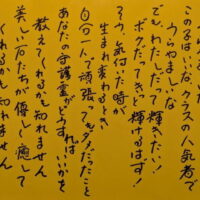 このコはいいな、クラスの人気者で
うらやましいな
でも、わたしだって輝きたい!
ボクだってきっと輝けるはず!
そう、気付いた時が
生まれ変わるとき
自分一人で頑張ってもダメだったこと
あなたの守護霊がどうすればいいかを
教えてくれるかも知れません
美しい石たちが優しく癒して
くれるかも知れません